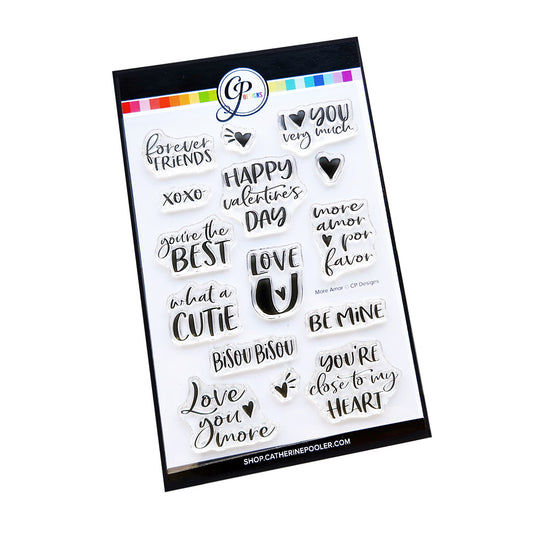 CP
DESIGNS
I ♥ YOU
very much
forever
FRIENDS
XOXO
HAPPY
valentine's
DAY
more
amor
♥ por
favor
you're the
BEST
LOVE
U
More Amor © CP Designs
what a
CUTIE
BE MINE
BISOU BISOU
YOU'RE
close to my
HEART
Love
you ♥
more
SHOP.CATHERINEPOOLER.COM